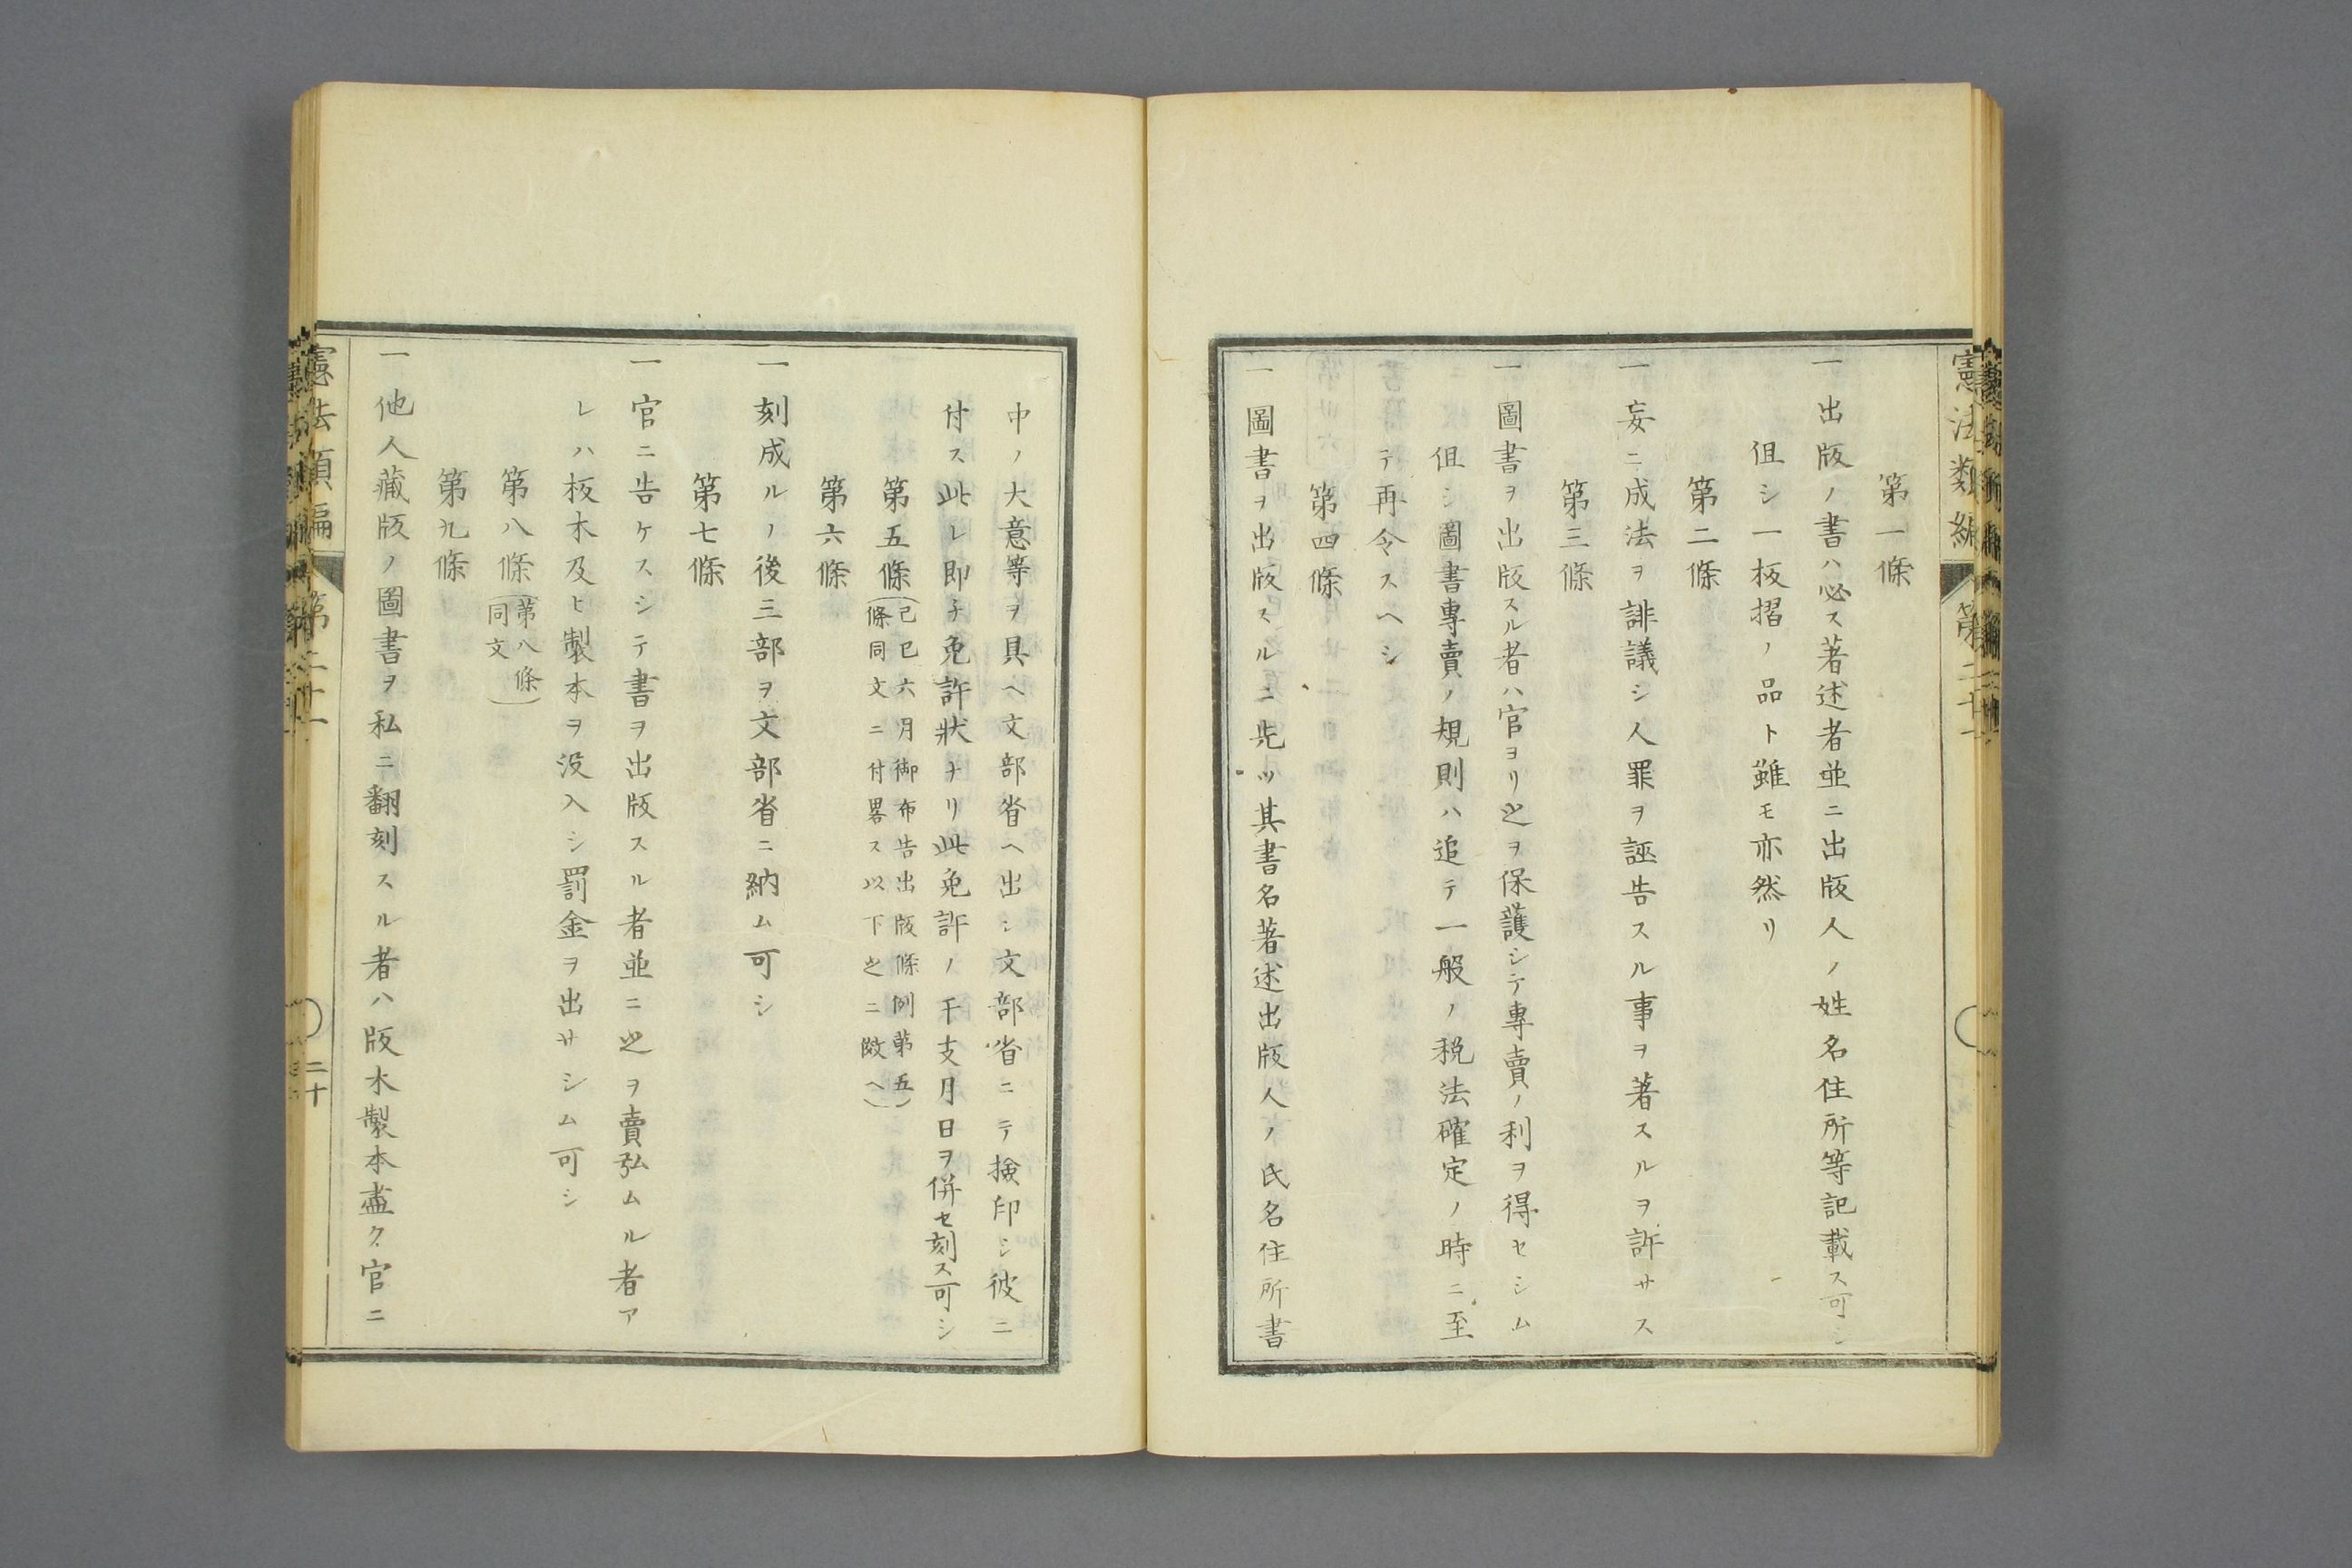 憲法類編 第二十一
第一條
一出版ノ書ハ必ス著述者並ニ出版人ノ姓名住所等記載ス可シ
但シ一枚摺ノ品ト雖モ亦然リ
第二條
一妄ニ成法ヲ誹議シ人罪ヲ誣告スル事ヲ著スルヲ許サス
第三條
一圖書ヲ出版スル者ハ官ヨリ之ヲ保護シテ專賣ノ利ヲ得セシム
但シ圖書專賣ノ規則ハ追テ一般ノ税法確定ノ時ニ至
テ再令スヘシ
第四條
一圖書ヲ出版スルニ先ツ其書名著述出版人ノ氏名住所書
中ノ大意等ヲ具ヘ文部省ヘ出シ文部省ニテ檢印シ彼ニ
付ス此レ即チ免許狀ナリ此免許ノ干支月日ヲ併セ刻ス可シ
第五條(己巳六月御布告出版條例第五
條同文ニ付畧ス以下之ニ倣ヘ)
第六條
一刻成ルノ後三部ヲ文部省ニ納ム可シ
第七條
一官ニ告ケスシテ書ヲ出版スル者並ニ之ヲ賣弘ムル者ア
レハ板木及ヒ製本ヲ没入シ罰金ヲ出サシム可シ
第八條(第八條
同文)
第九條
一他人藏版ノ圖書ヲ私ニ翻刻スル者ハ版木製本盡ク官ニ
憲法類編 第二十一 二十